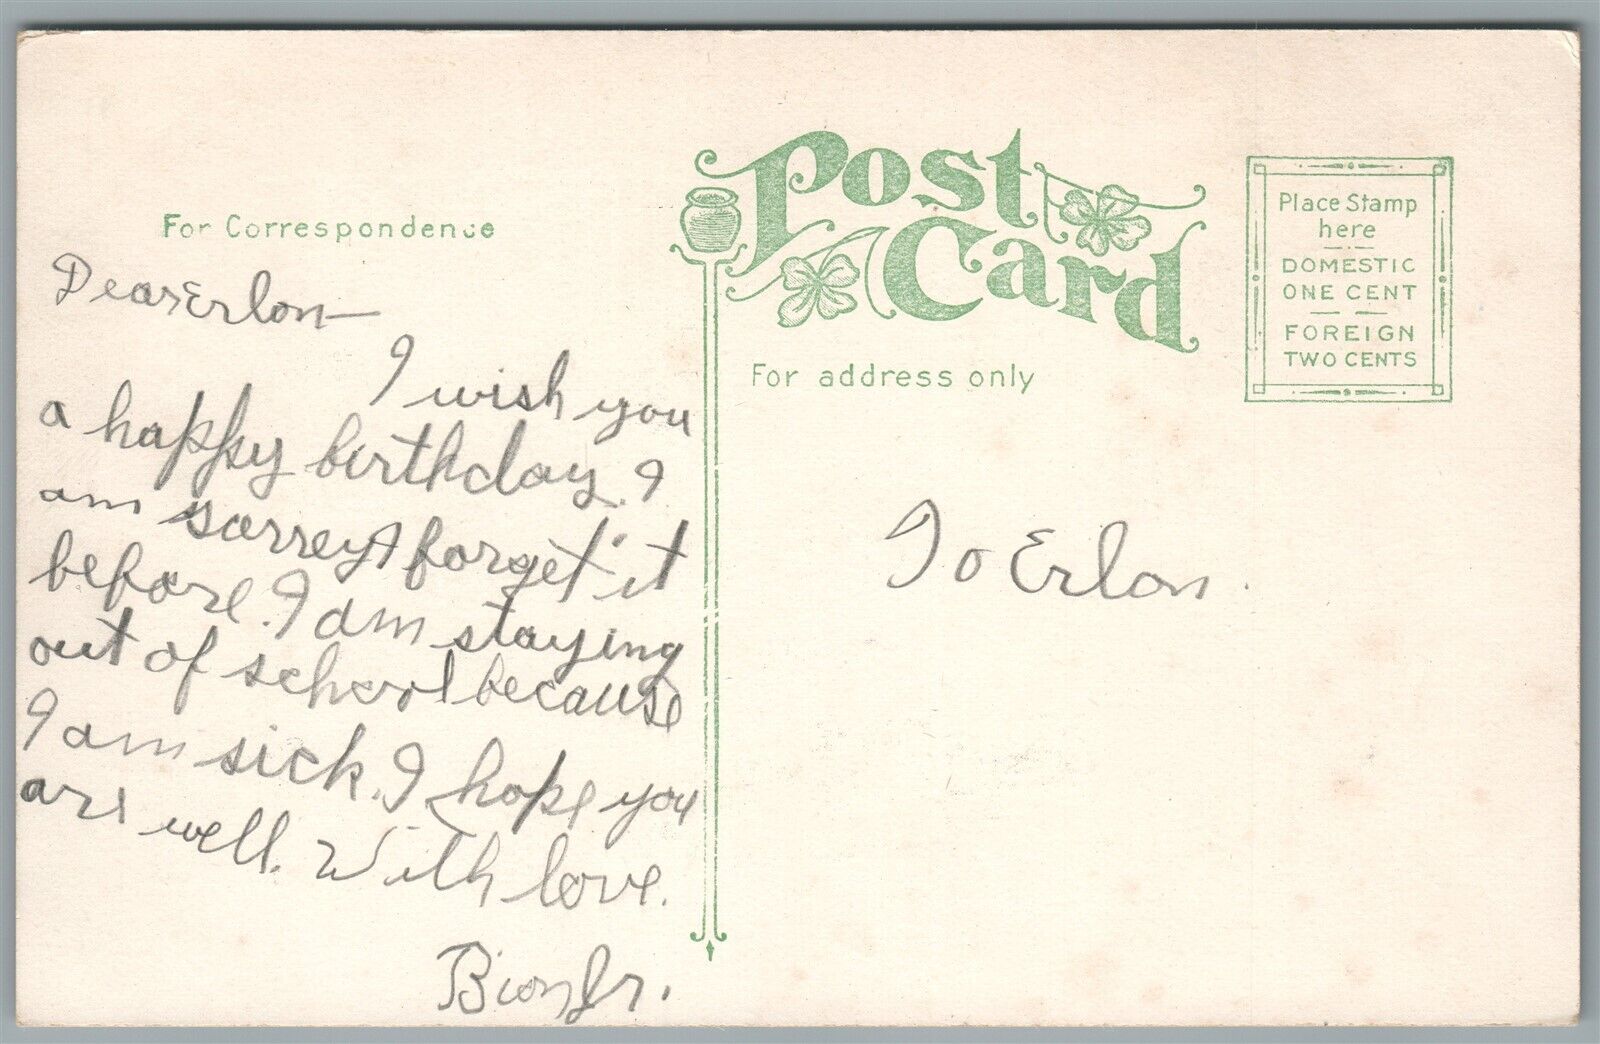 For Correspondence
Dear Erlon—
I wish you
a happy birthday. I
am sorrey I forget it
before. I am staying
out of school because
I am sick. I hope you
are well. With love.
Bion Jr.
Post
Card
For address only
To Erlon.
Place Stamp
here
DOMESTIC
ONE CENT
FOREIGN
TWO CENTS